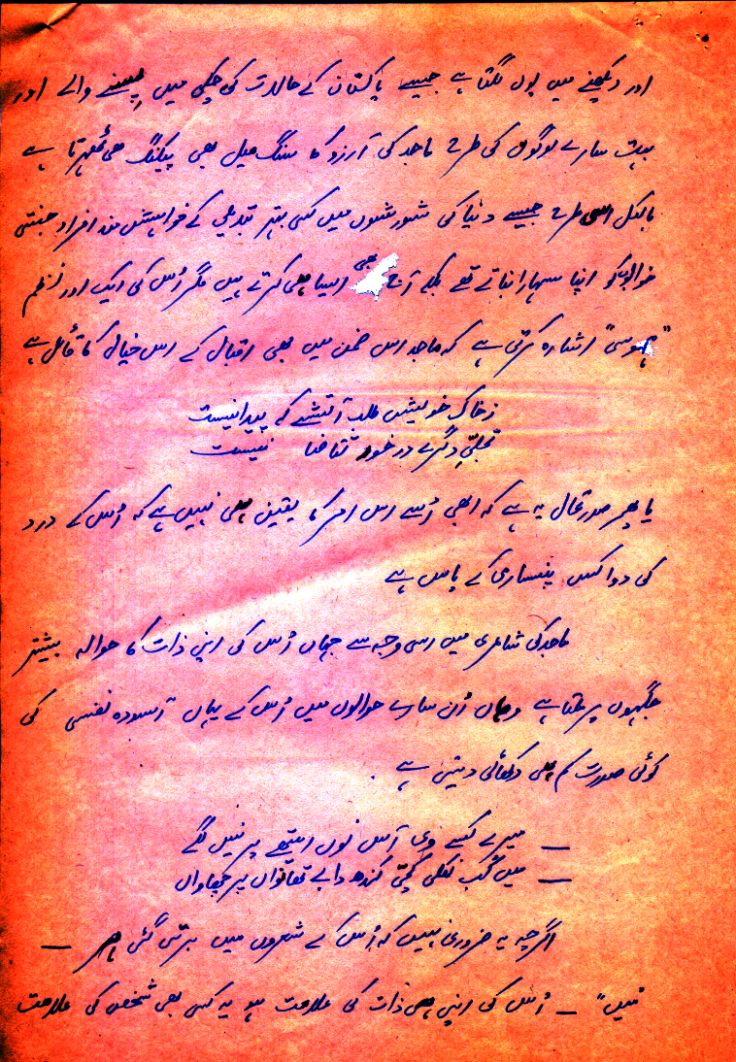 اور دیکھنے میں یوں لگتا ہے جیسے پاکستان کے حالات کی چکی میں پسنے والے اور
بہت سارے لوگوں کی طرح ماجد کی آرزو کا سنگ میل بھی پیکنگ ہی ٹھہرتا ہے
بالکل اسی طرح جیسے دنیا کی شورشوں میں کسی بہتر تبدیلی کے خواہش مند افراد جنتی
خوابوں کو اپنا سہارا بناتے تھے بلکہ آج بھی ایسا ہی کرتے ہیں مگر اُس کی ایک اور نظم
"ہوسی" اشارہ کرتی ہے کہ ماجد اس ضمن میں بھی اقبال کے اس خیال کا قائل ہے
زخاکِ خویش طلب آتشے کہ پیدا نیست
تجلّیِ دگرے درخورِ تقاضا نیست
یا پھر صورتحال یہ ہے کہ ابھی اُسے اس امر کا یقین ہی نہیں ہے کہ اُس کے درد
کی دوا کس پنساری کے پاس ہے
ماجد کی شاعری میں اسی وجہ سے جہاں اُس کی اپنی ذات کا حوالہ بیشتر
جگہوں پر ملتا ہے وہاں اُن سارے حوالوں میں اُس کے یہاں آسودہ نفسی کی
کوئی صورت کم ہی دکھائی دیتی ہے .
— میرے کسے وی آس نوں ایتھے پر نئیں لگے
— میں کُب نکلی کُپتی کندھ دا بے تھانواں پرچھاواں
اگرچہ یہ ضروری نہیں کہ اُس کے شعروں میں برتی گئی ہر —
"میں" — اُس کی اپنی ہی ذات کی علامت ہو یہ کسی بھی شخص کی علامت